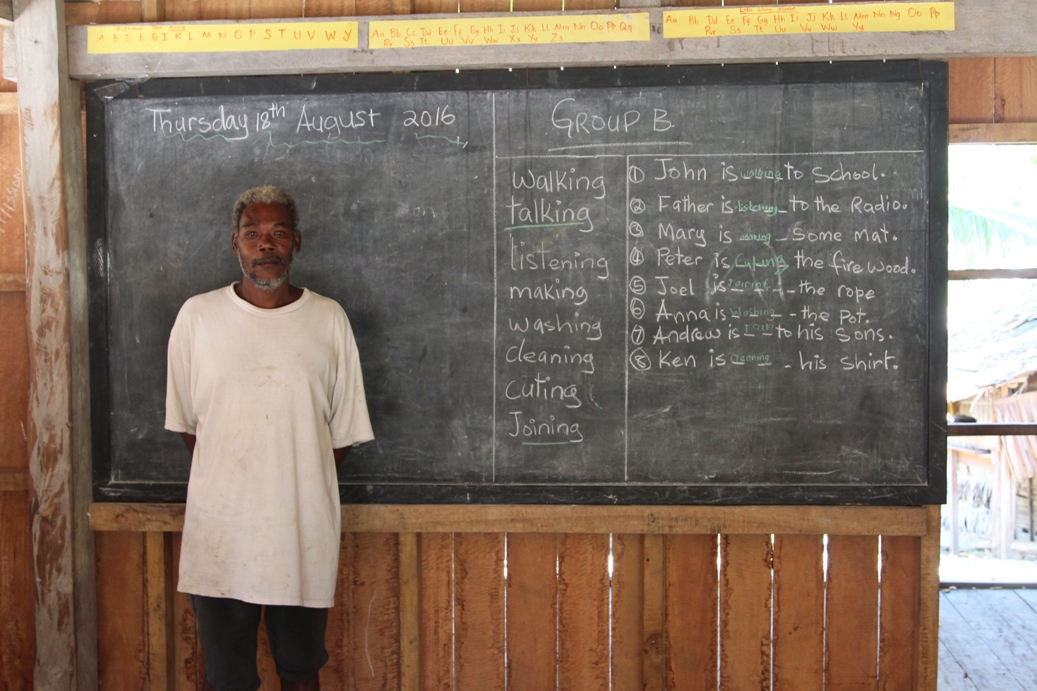 A B D E G I K L M N O P S T U V W Y
Aa Bb Cc Dd Ee Ff Gg Hh Ii Jj Kk Ll Mm Nn Oo Pp Qq
Rr Ss Tt Uu Vv Ww Xx Yy Zz
Aa Bb Dd Ee Ff Gg Hh Ii Jj Kk Ll Mm Nn Ng Oo Pp
Rr Ss Tt Uu Vv Ww Yy
Thursday 18th August 2016
GROUP B
Walking
talking
listening
making
washing
cleaning
cuting
Joining
① John is walking to School.
② Father is listening to the Radio.
③ Mary is making Some mat.
④ Peter is Cuting the fire wood.
⑤ Joel is Joining the rope
⑥ Anna is washing the pot.
⑦ Andrew is to his Sons.
⑧ Ken is Cleaning his shirt.